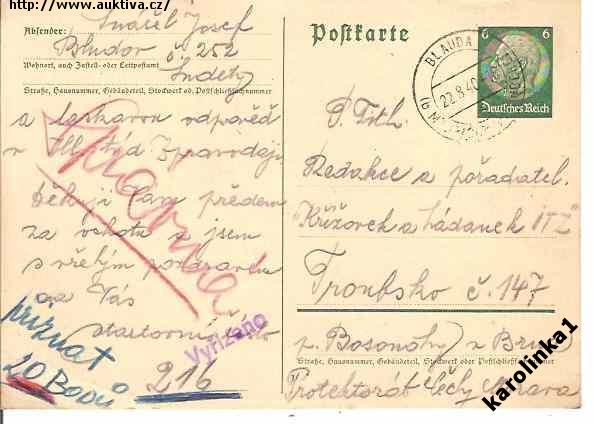 www.auktiva.cz
Absender: Josef
Bludov č. 252
Wohnort, auch Zustell- oder Leitpostamt
Sudety
Straße, Hausnummer, Gebäudeteil, Stockwerk od. Postschließfachnummer
a laskavou odpověď
v Zpravodaji
Děkuji Vám předem
za ochotu a jsem
s vřelým pozdravem
na Vás
startovní číslo
216
Vyřízeno
přiznat
20 Bodů
Postkarte
6 6
Deutsches Reich
BLAUDA
22.8.40
P. Tith.
Redakce a pořadatel.
"Křížovek a hádanek ITZ"
Troubsko č. 147
p. Bosonohy u Brna
Straße, Hausnummer, Gebäudeteil, Stockwerk oder Postschließfachnummer
Protektorát Čechy Morava
karolinka1